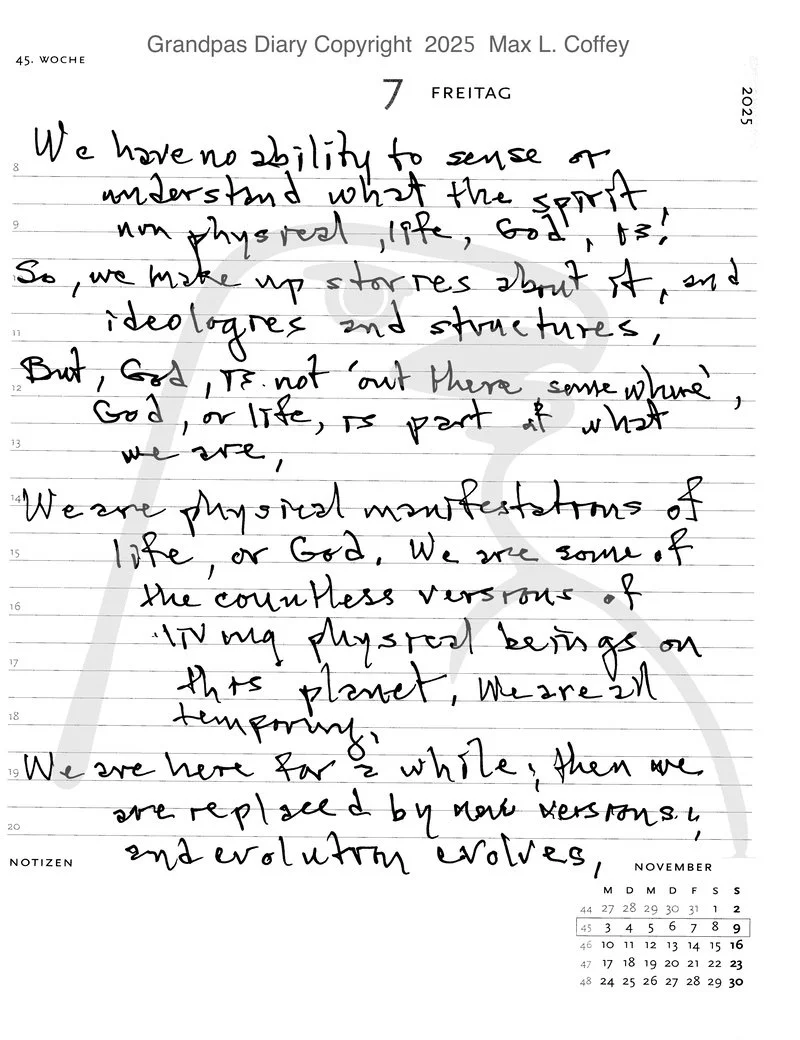 Grandpas Diary Copyright 2025 Max L. Coffey
45. WOCHE
7 FREITAG
2025
We have no ability to sense or
8
understand what the spirit,
9
non physical, life, God, is!
So, we make up stories about it, and
11
ideologies and structures,
But, God, is not 'out there somewhere',
12
God, or life, is part of what
13
we are,
14
We are physical manifestations of
15
life, or God. We are some of
16
the countless versions of
living physical beings on
17
this planet, We are all
18
temporary,
19
We are here for a while, then we
are replaced by new versions,
20
and evolution evolves,
NOTIZEN
NOVEMBER
M D M D F S S
44 27 28 29 30 31 1 2
45 3 4 5 6 7 8 9
46 10 11 12 13 14 15 16
47 17 18 19 20 21 22 23
48 24 25 26 27 28 29 30